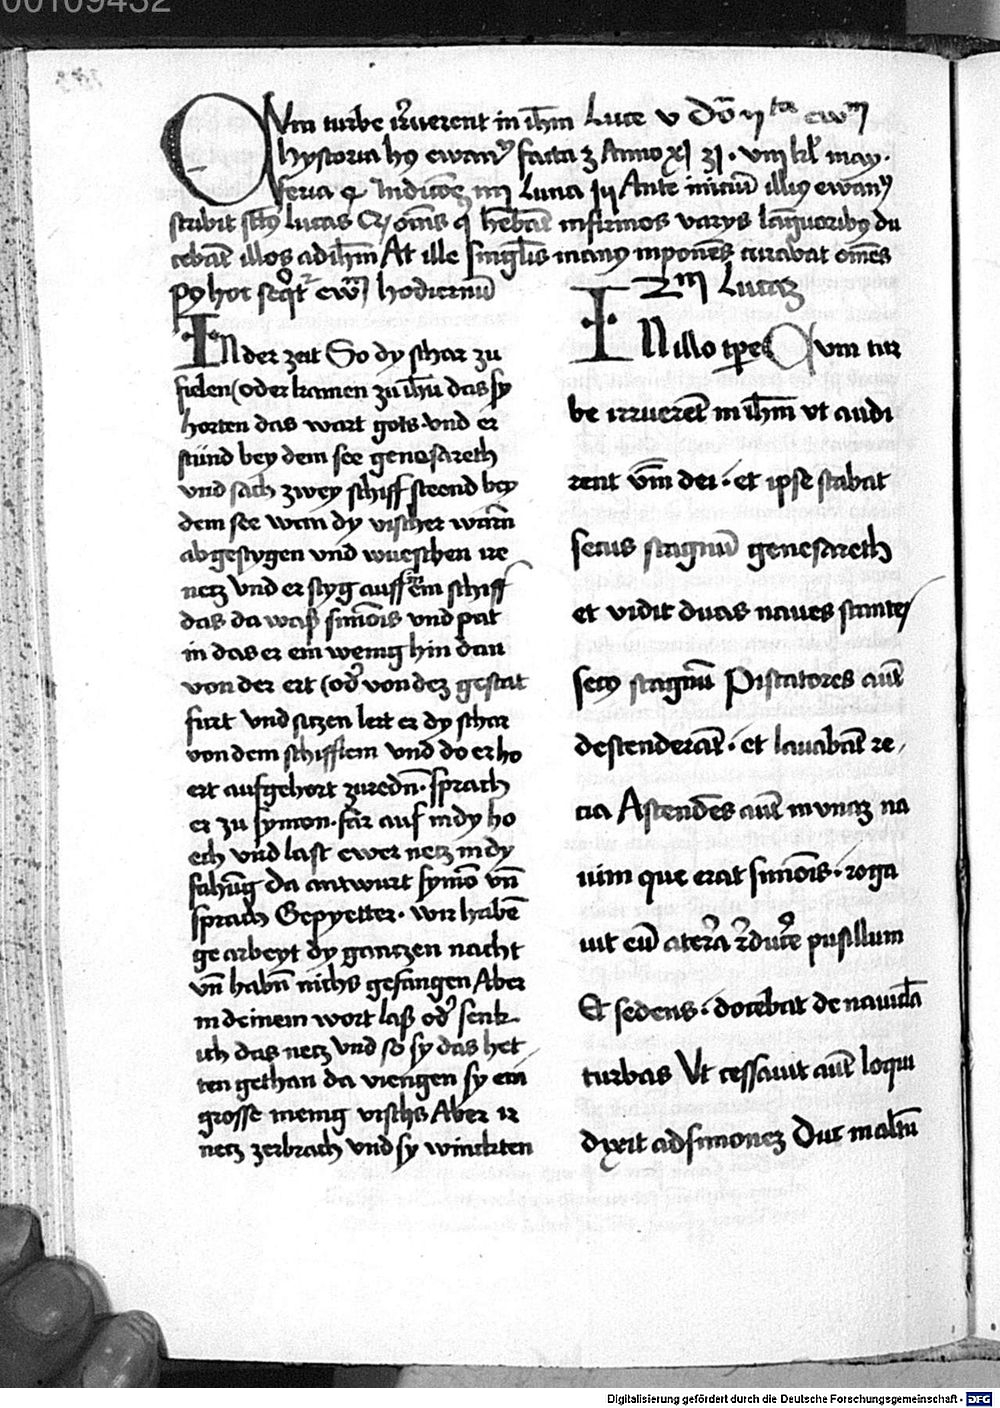 00109432
Cum turbe irruerent in ih̅m Luce v
hystoria hꝰ ewanꝰ facta Anno xj may
feria Luna Ante iniciu̅ illiꝰ ewanꝰ
scribit Lucas infirmos varys la̅guoribꝫ du
ceba̅t illos ad ih̅m At ille singulis manꝰ inpone̅s curabat om̅es
hoc hodiernu̅
Luca
In der zeit So dy schar zu
fielen (oder kamen zu ih̅u das sy
horten das wort gots vnd er
stünd bey dem see genesareth
vnd sach zwey schiff steend bey
dem see wan dy vischer warn̅
abgestygen vnd wueschen ire
netz vnd er styg auff ein schiff
das da waß simo̅is vnd pat
in das er ein wenig hin dan
von der ert (od̓ von deꝫ gestat
furt vnd sitzen lert er dy schar
von dem schifflein vnd do er ho
ert aufgehort zuredn̅ · sprach
er zu symon · far auf in dy ho
ech vnd last ewer netz in dy
fahu̅g da antwurt symo̅ vn̅
sprach Gepyetter · wir habe̅
gearbeyt dy gantzen nacht
vn̅ habn̅ nichs gefangen Aber
in deinem wort laß od̓ senk
ich das netz vnd so sy das het
ten gethan da viengen sy ein
grosse menig vischs Aber ir
netz zerbrach vnd sy winckten
In illo tp̅e Cum tur
be irruere̅t in ih̅m vt audi
rent v̅m dei · et ipse stabat
secus stagnu̅ genesareth
et vidit duas naues stantes
secꝰ stagnu̅ Piscatores aut̅
descendera̅t · et lauaba̅t re
cia Ascende̅s aut̅ in vnaꝫ na
uim que erat simo̅is · roga
uit eu̅ a ter̓a r̓duce̅ pusillum
Et sedens · docebat de nauicl̅a
turbas Vt cessauit aut̅ loqui
dixit ad simoneꝫ Duc in altu̅
Digitalisierung gefördert durch die Deutsche Forschungsgemeinschaft - DFG